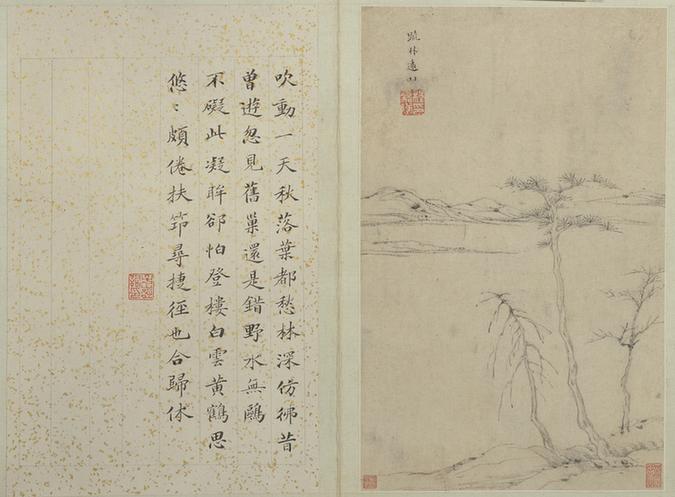 踈林遠山
吹動一天秋落葉都愁林深仿彿昔
曾遊忽見舊巢還是錯野水無鷗
不礙此凝眸郤怕登樓白雲黃鶴思
悠〻頗倦扶筇尋捷徑也合歸休